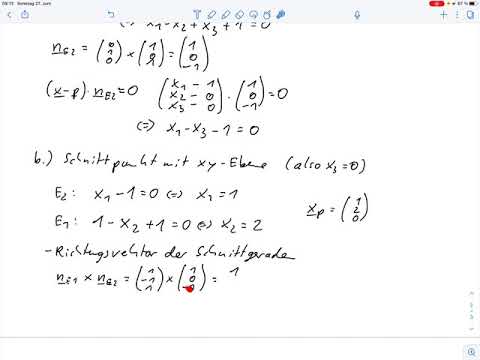 09:13 Sonntag 27. Juni 67 %
(=) x₁-x₂+x₃+1=0
n_E2 = (0 1 0) × (1 0 1) = (1 0 -1)
(x-p)·n_E2=0 (x₁-1 x₂-0 x₃-0)·(1 0 -1)=0
(=) x₁-x₃-1=0
b.) Schnittpunkt mit xy-Ebene (also x₃=0)
E₂: x₁-1=0 (=) x₁=1
E₁: 1-x₂+1=0 (=) x₂=2 x_p = (1 2 0)
-Richtungsvektor der Schnittgeraden
n_E1 × n_E2 = (1 -1 1) × (1 0 -1) = 1